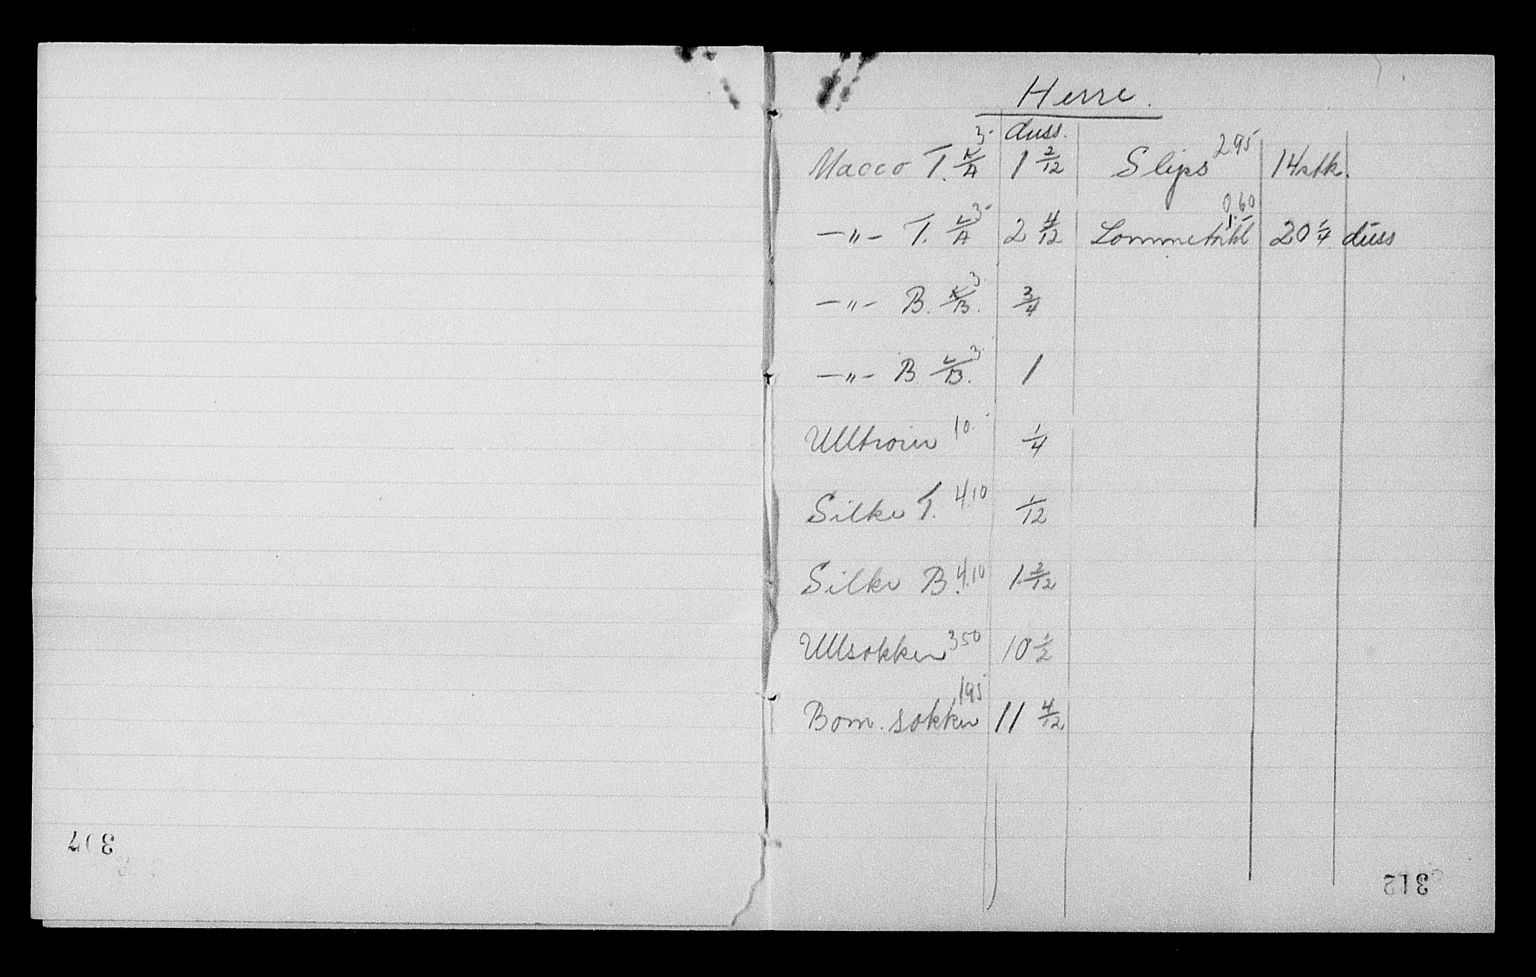 Herre.
duss.
Macco T. K/A 3- 1 2/12 Slips 2 95 14 stk.
—„— T. L/A 3- 2 4/12 Lommetrkl 0 60 1.- 20 1/4 duss
—„— B. K/B. 3 3/4
—„— B L/B. 3- 1
Ulltroier 10.- 1/4
Silke T. 4.10 1/12
Silke B. 4.10 1 2/12
Ullsokker 3 50 10 1/2
Bom. sokker 1 95 11 4/12
307
312